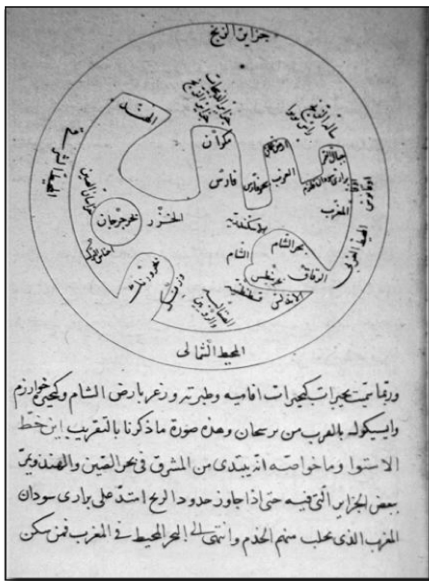 جزاير الزنج
الهند
مكران
فارس
العرب
بحر فارس
المغرب
المحيط الشرقى
المحيط الغربى
بحر جرجان
الخزر
الاسكندرية
بحر الشام
الشام
الاندلس
قسطنطنية
المحيط الشمالى
وربما سميت بحيرات كبحيرات افاميه وطبريه وزغر بارض الشام وكبحيرة خوارزم
وايسكوله بالقرب من برسخان وهذه صورة ما ذكرنا بالتقريب اين خط
الاستوا وما خواصه انه يبتدى من المشرق فى بحر الصين والهند ويمر
ببعض الجزاير التى فيه حتى اذا جاوز حدود الزنج امتد على برارى سودان
المغرب الذى يجلب منهم الخدم وانتهى الى البحر المحيط فى المغرب فمن سكن